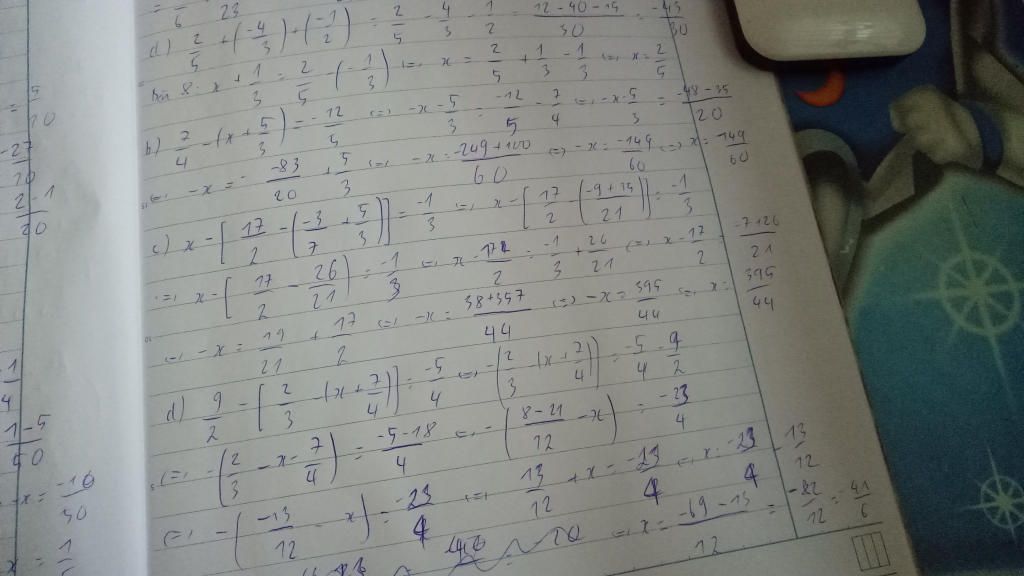 6 23
d) 2/5 + (-4/3) + (-1/2) = 2/5 - 4/3 - 1/2 = 12-40-15/30 = -43/30
Bài 8: x + 1/3 = 2/5 - (-1/3) (=) x = 2/5 + 1/3 - 1/3 (=) x = 2/5
b) 7/4 - (x + 5/3) = -12/5 (=) -x - 5/3 = -12/5 - 7/4 (=) -x - 5/3 = -48-35/20
(=) -x = -83/20 + 5/3 (=) -x = -249+100/60 (=) -x = -149/60 (=) x = -149/60
c) x - [17/2 - (-3/7 + 5/3)] = -1/3 (=) x - [17/2 - (-9+35/21)] = -1/3
(=) x - [17/2 - 26/21) = -1/3 (=) x - 17/2 = -1/3 + 26/21 (=) x - 17/2 = -7+26/21
(=) -x = 19/21 + 17/2 (=) -x = 38+357/44 (=) -x = 395/44 (=) x = 395/44
d) 9/2 - [2/3 - (x + 7/4)] = -5/4 (=) -(2/3 - (x + 7/4)) = -5/4 - 9/2
(=) -(2/3 - x - 7/4) = -5-18/4 (=) -(8-21/12 - x) = -23/4
(=) -(-13/12 - x) = -23/4 (=) 13/12 + x = -23/4 (=) x = -23/4 - 13/12
(=) x = -69-13/12 = -82/12 = 41/6
= 5/20
-27/20
2-1/20
1/4
1-5
-x = -10/30
x = 1